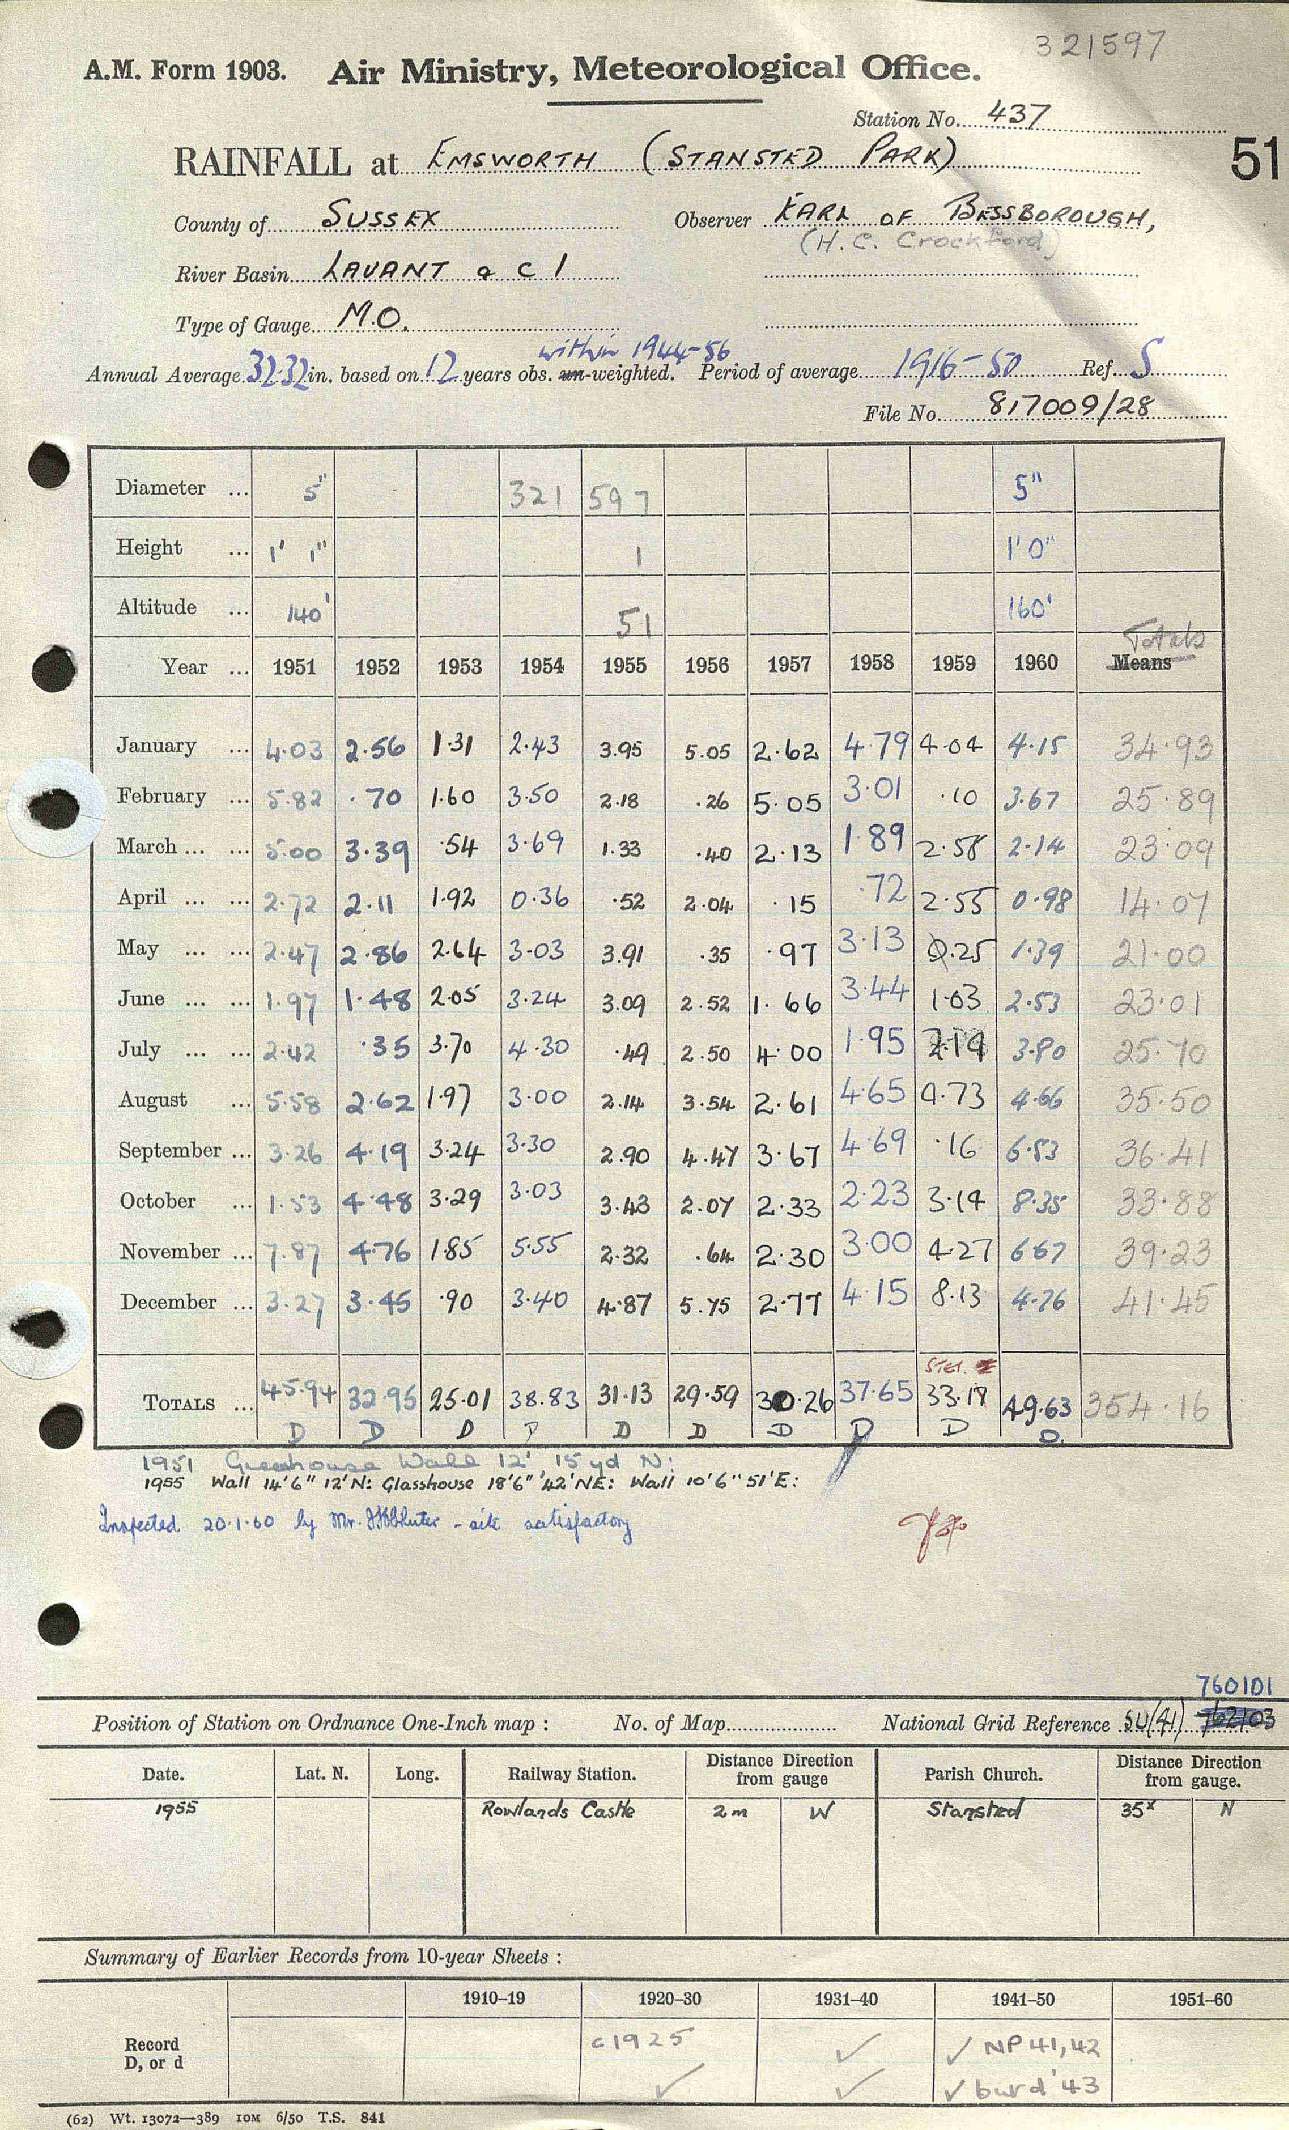 321597
A.M. Form 1903. Air Ministry, Meteorological Office.
Station No. 437
RAINFALL at EMSWORTH (STANSTED PARK)
51
County of SUSSEX Observer EARL OF BESSBOROUGH,
(H.C. Crockford)
River Basin LAVANT & C 1
Type of Gauge M.O.
within 1944-56
Annual Average 32.32 in. based on 12 years obs. un-weighted. Period of average 1916-50 Ref. S
File No. 817009/28
Diameter ... 5" 321 597 5"
Height ... 1' 1" 1 1' 0"
Altitude ... 140' 51 160'
Totals
Year ... 1951 1952 1953 1954 1955 1956 1957 1958 1959 1960 Means
January ... 4.03 2.56 1.31 2.43 3.95 5.05 2.62 4.79 4.04 4.15 34.93
February ... 5.82 .70 1.60 3.50 2.18 .26 5.05 3.01 .10 3.67 25.89
March ... ... 5.00 3.39 .54 3.69 1.33 .40 2.13 1.89 2.58 2.14 23.09
April ... ... 2.72 2.11 1.92 0.36 .52 2.04 .15 .72 2.55 0.98 14.07
May ... ... 2.47 2.86 2.64 3.03 3.91 .35 .97 3.13 0.25 1.39 21.00
June ... ... 1.97 1.48 2.05 3.24 3.09 2.52 1.66 3.44 1.03 2.53 23.01
July ... ... 2.42 .35 3.70 4.30 .49 2.50 4.00 1.95 2.19 3.80 25.70
August ... 5.58 2.62 1.97 3.00 2.14 3.54 2.61 4.65 4.73 4.66 35.50
September ... 3.26 4.19 3.24 3.30 2.90 4.47 3.67 4.69 .16 6.53 36.41
October ... 1.53 4.48 3.29 3.03 3.43 2.07 2.33 2.23 3.14 8.35 33.88
November ... 7.87 4.76 1.85 5.55 2.32 .64 2.30 3.00 4.27 6.67 39.23
December ... 3.27 3.45 .90 3.40 4.87 5.75 2.77 4.15 8.13 4.76 41.45
STET.
TOTALS ... 45.94 32.95 25.01 38.83 31.13 29.59 30.26 37.65 33.17 49.63 354.16
D D D D D D D D D D.
1951 Greenhouse Wall 12' 15 yd N:
1955 Wall 14'6" 12'N: Glasshouse 18'6" 42'NE: Wall 10'6" 51'E:
Inspected 20.1.60 by Mr. - site satisfactory
760101
Position of Station on Ordnance One-Inch map : No. of Map National Grid Reference SU(41) 762103
Date. Lat. N. Long. Railway Station. Distance Direction from gauge Parish Church. Distance Direction from gauge.
1955 Rowlands Castle 2m W Stansted 35x N
Summary of Earlier Records from 10-year Sheets :
1910–19 1920–30 1931–40 1941–50 1951–60
Record c1925 ✓ ✓ NP 41, 42
D, or d ✓ ✓ ✓ burd '43
(62) Wt. 13072—389 10M 6/50 T.S. 841